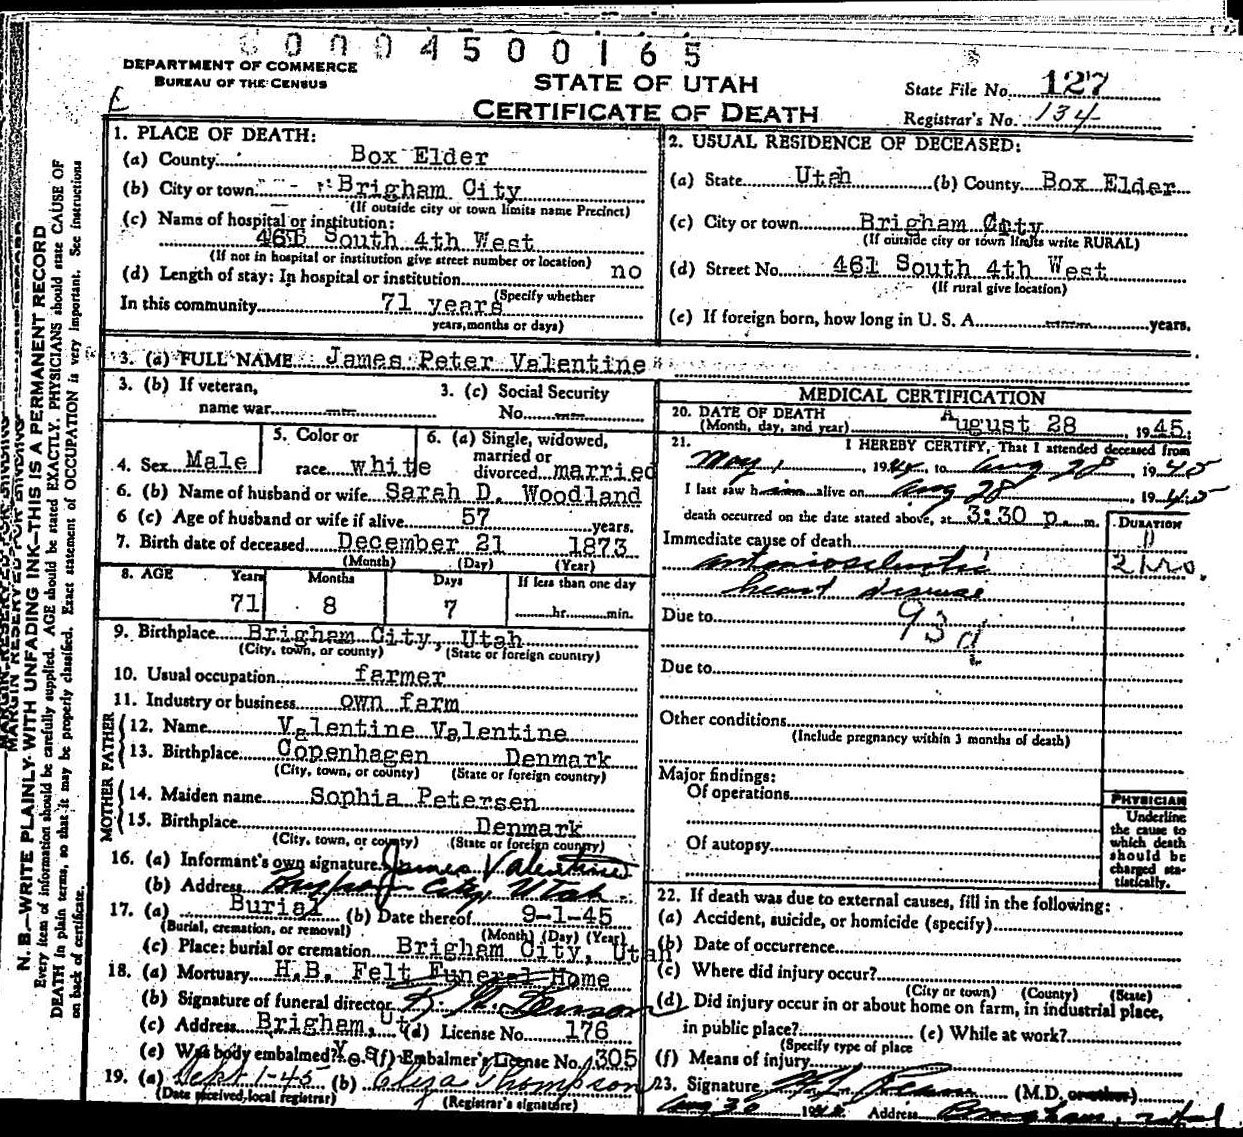 0 0 0 4 5 0 0 1 6 5
DEPARTMENT OF COMMERCE
BUREAU OF THE CENSUS
STATE OF UTAH
CERTIFICATE OF DEATH
State File No. 127
Registrar's No. 134
1. PLACE OF DEATH:
(a) County Box Elder
(b) City or town Brigham City
(If outside city or town limits name Precinct)
(c) Name of hospital or institution:
461 South 4th West
(If not in hospital or institution give street number or location)
(d) Length of stay: In hospital or institution no
(Specify whether
In this community 71 years
years, months or days)
2. USUAL RESIDENCE OF DECEASED:
(a) State Utah (b) County Box Elder
(c) City or town Brigham City
(If outside city or town limits write RURAL)
(d) Street No. 461 South 4th West
(If rural give location)
(e) If foreign born, how long in U. S. A. --- years.
3. (a) FULL NAME James Peter Valentine
3. (b) If veteran,
name war ---
3. (c) Social Security
No. ---
4. Sex Male
5. Color or
race white
6. (a) Single, widowed,
married or
divorced married
6. (b) Name of husband or wife Sarah D. Woodland
6 (c) Age of husband or wife if alive 57 years.
7. Birth date of deceased December 21 1873
(Month) (Day) (Year)
8. AGE Years Months Days If less than one day
71 8 7 hr. min.
9. Birthplace Brigham City, Utah
(City, town, or county) (State or foreign country)
10. Usual occupation farmer
11. Industry or business own farm
FATHER
12. Name Valentine Valentine
13. Birthplace Copenhagen Denmark
(City, town, or county) (State or foreign country)
MOTHER
14. Maiden name Sophia Petersen
15. Birthplace Denmark
(City, town, or county) (State or foreign country)
16. (a) Informant's own signature James Valentine
(b) Address Brigham City, Utah
17. (a) Burial (b) Date thereof 9-1-45
(Burial, cremation, or removal) (Month) (Day) (Year)
(c) Place: burial or cremation Brigham City, Utah
18. (a) Mortuary H.B. Felt Funeral Home
(b) Signature of funeral director
(c) Address Brigham, Ut (d) License No. 176
(e) Was body embalmed? Yes (f) Embalmer's License No. 305
19. (a) Sept 1-45 (b) Eliza Thompson
(Date received, local registrar) (Registrar's signature)
MEDICAL CERTIFICATION
20. DATE OF DEATH
(Month, day, and year) August 28, 1945.
21. I HEREBY CERTIFY, That I attended deceased from
May 1, 1944, to Aug 28 1945
I last saw him alive on Aug 28, 1945
death occurred on the date stated above, at 3:30 p. m.
DURATION
Immediate cause of death
arteriosclerotic 2 hrs.
heart disease
Due to 93d
Due to
Other conditions
(Include pregnancy within 3 months of death)
Major findings:
Of operations
Of autopsy
PHYSICIAN
Underline
the cause to
which death
should be
charged sta-
tistically.
22. If death was due to external causes, fill in the following:
(a) Accident, suicide, or homicide (specify)
(b) Date of occurrence
(c) Where did injury occur?
(City or town) (County) (State)
(d) Did injury occur in or about home on farm, in industrial place,
in public place? (e) While at work?
(Specify type of place
(f) Means of injury
23. Signature (M.D. or other)
Aug 30 19 Address Brigham, Utah
MARGIN RESERVED FOR BINDING
N. B.—WRITE PLAINLY WITH UNFADING INK—THIS IS A PERMANENT RECORD
Every item of information should be carefully supplied. AGE should be stated EXACTLY. PHYSICIANS should state CAUSE OF
DEATH in plain terms, so that it may be properly classified. Exact statement of OCCUPATION is very important. See instructions
on back of certificate.